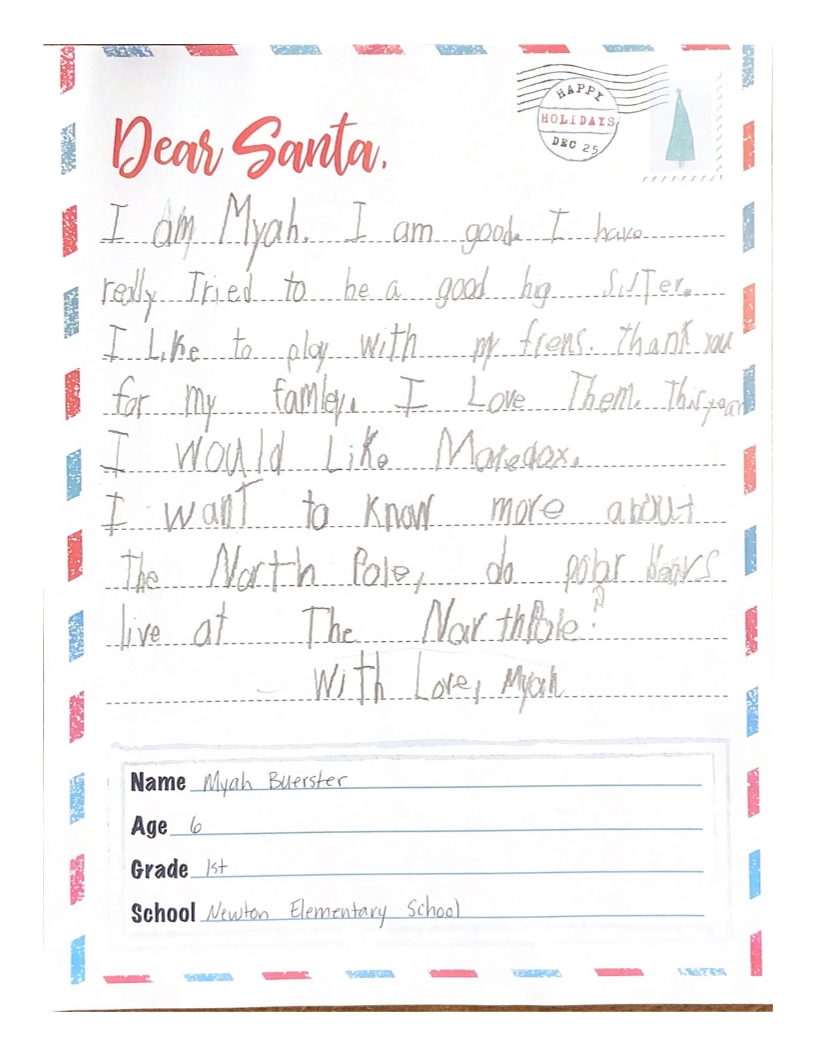 HAPPY
HOLIDAYS
DEC 25
Dear Santa,
I am Myah. I am good. I have
really Tried to be a good big SisTer.
I Like to play with my frens. thank you
for my famley. I Love Them. This year
I would Like Moredox.
I wanT to know more about
The North Pole, do polar bears
live at The North Pole?
With Love, Myah
Name Myah Buerster
Age 6
Grade 1st
School Newton Elementary School